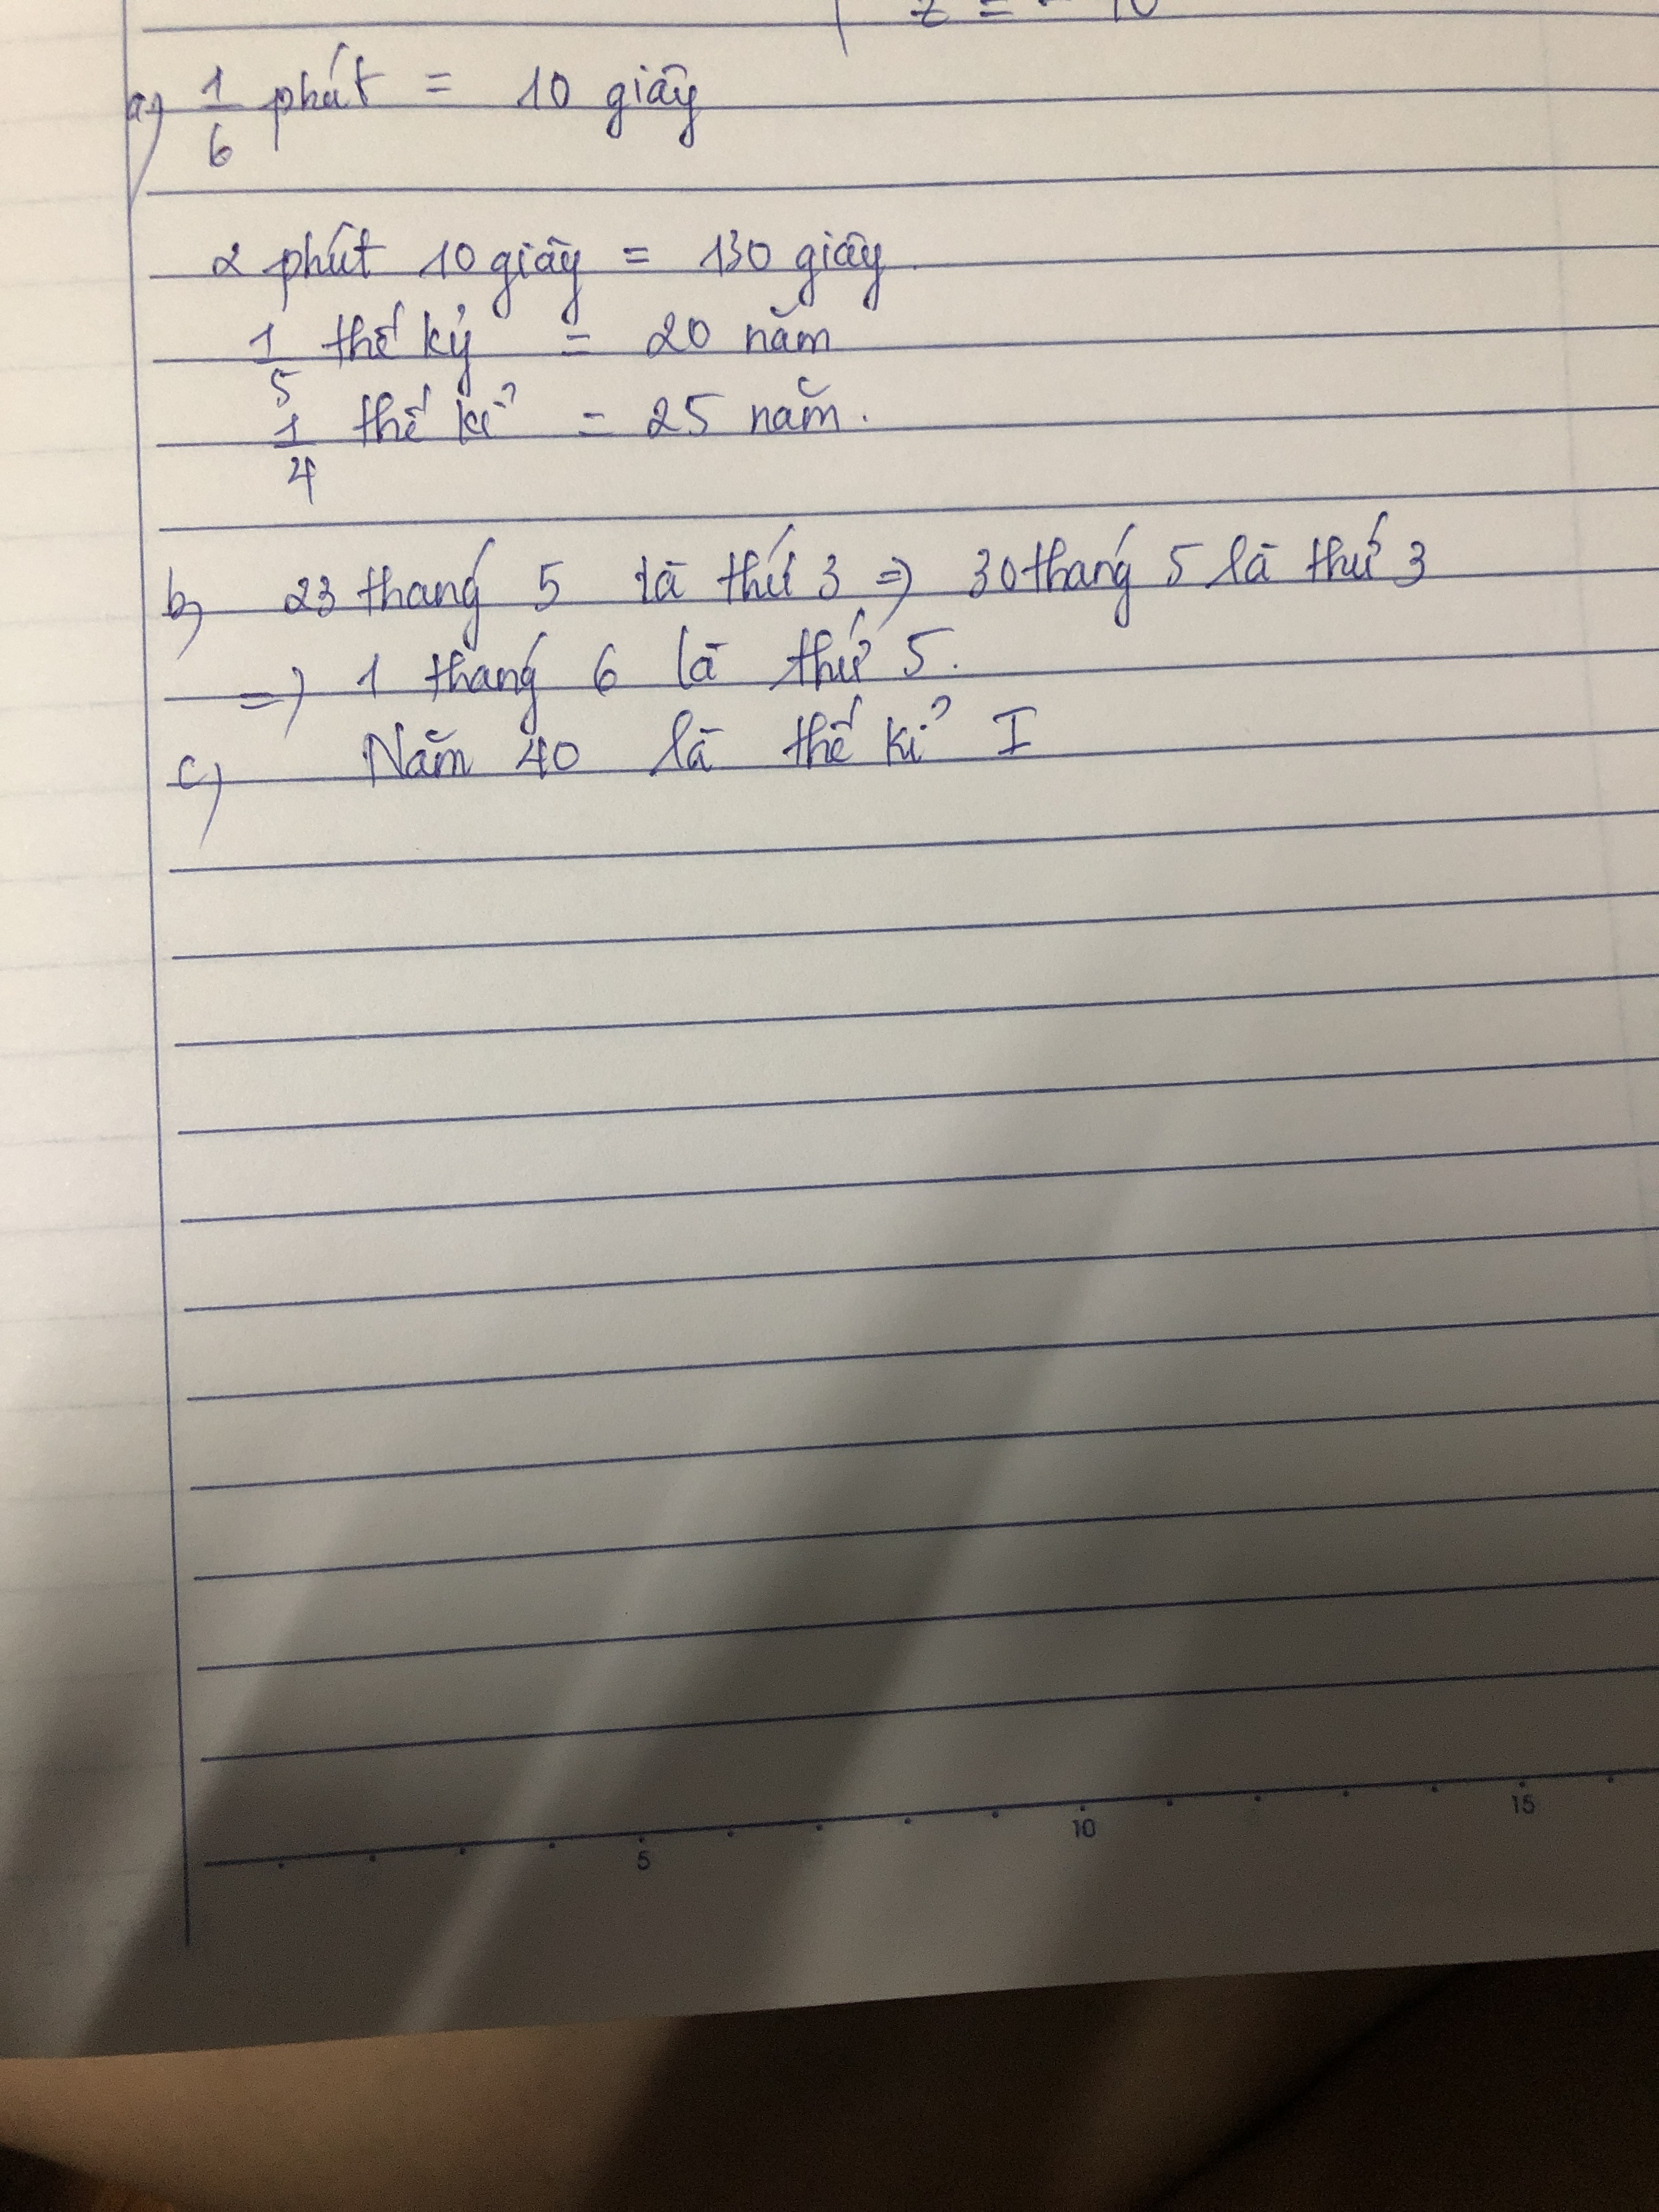 a) 1/6 phút = 10 giây
2 phút 10 giây = 130 giây.
1/5 thế kỷ = 20 năm
1/4 thế kỉ = 25 năm.
b) 23 tháng 5 là thứ 3 => 30 tháng 5 là thứ 3
=> 1 tháng 6 là thứ 5.
c) Năm 40 là thế kỉ I
5 10 15